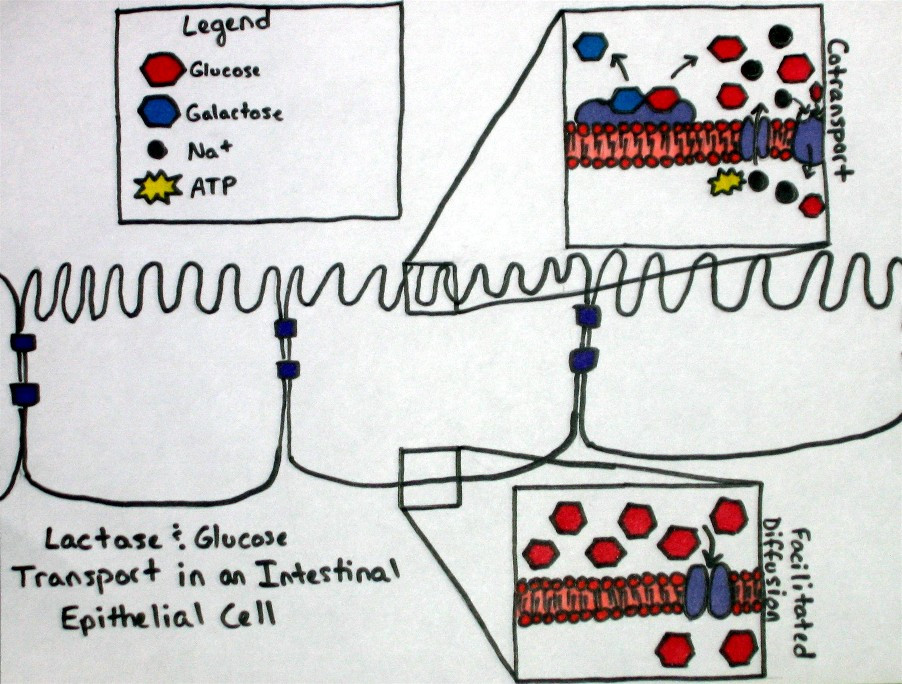 Legend
Glucose
Galactose
Na+
ATP
Cotransport
Lactase & Glucose
Transport in an Intestinal
Epithelial Cell
Facilitated
Diffusion